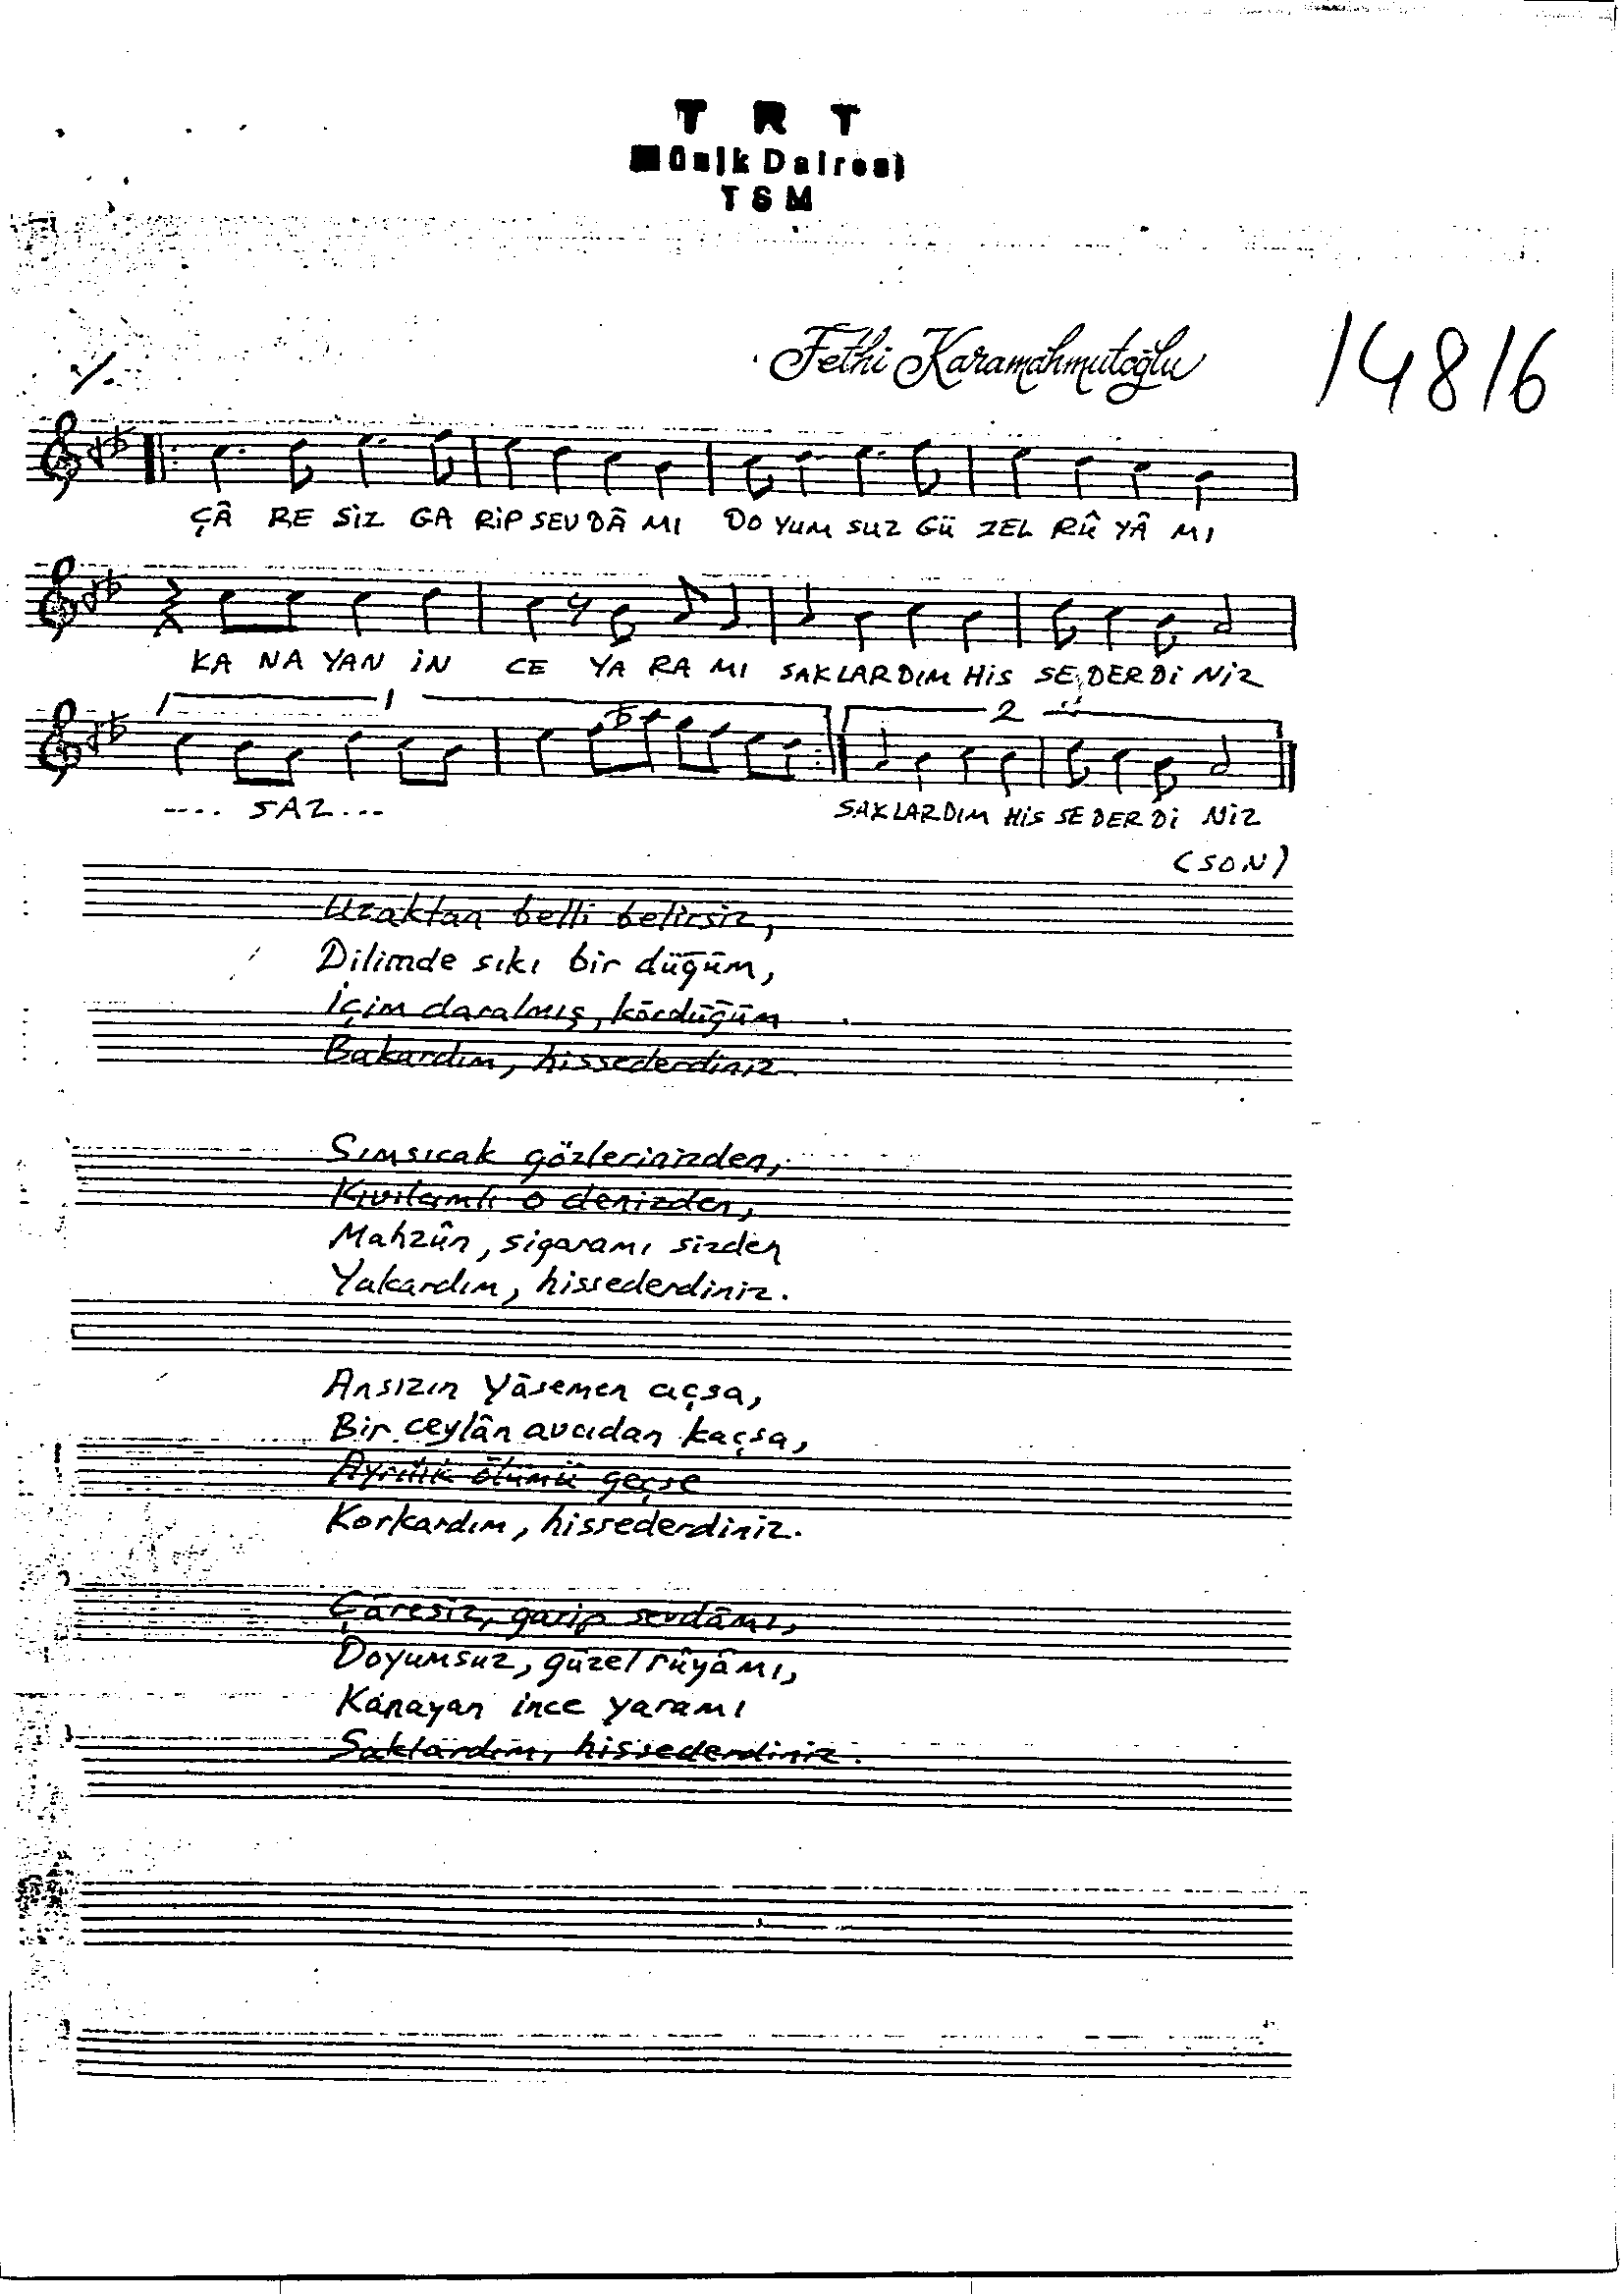 T R T
Müzik Dairesi
TSM
Fethi Karamahmutoğlu
14816
ÇÂ RE SİZ GA RİP SEVDÂ MI DO YUM SUZ GÜ ZEL RÛ YÂ MI
KA NA YAN İN CE YA RA MI SAKLARDIM HİS SE DER Dİ NİZ
1 2
.... SAZ ... SAKLARDIM HİS SE DER Dİ NİZ
(SON)
Uzaktan belli belirsiz,
Dilimde sıkı bir düğüm,
İçim daralmış, kördüğüm
Bakardım, hissederdiniz.
Sımsıcak gözlerinizden,
Kıvılcımlı o denizden,
Mahzûn, sigaramı sizden
Yakardım, hissederdiniz.
Ansızın yâsemen açsa,
Bir ceylân avcıdan kaçsa,
Ayrılık ölümü geçse
Korkardım, hissederdiniz.
Çâresiz, garip sevdâmı,
Doyumsuz, güzel rûyâmı,
Kanayan ince yaramı
Saklardım, hissederdiniz.